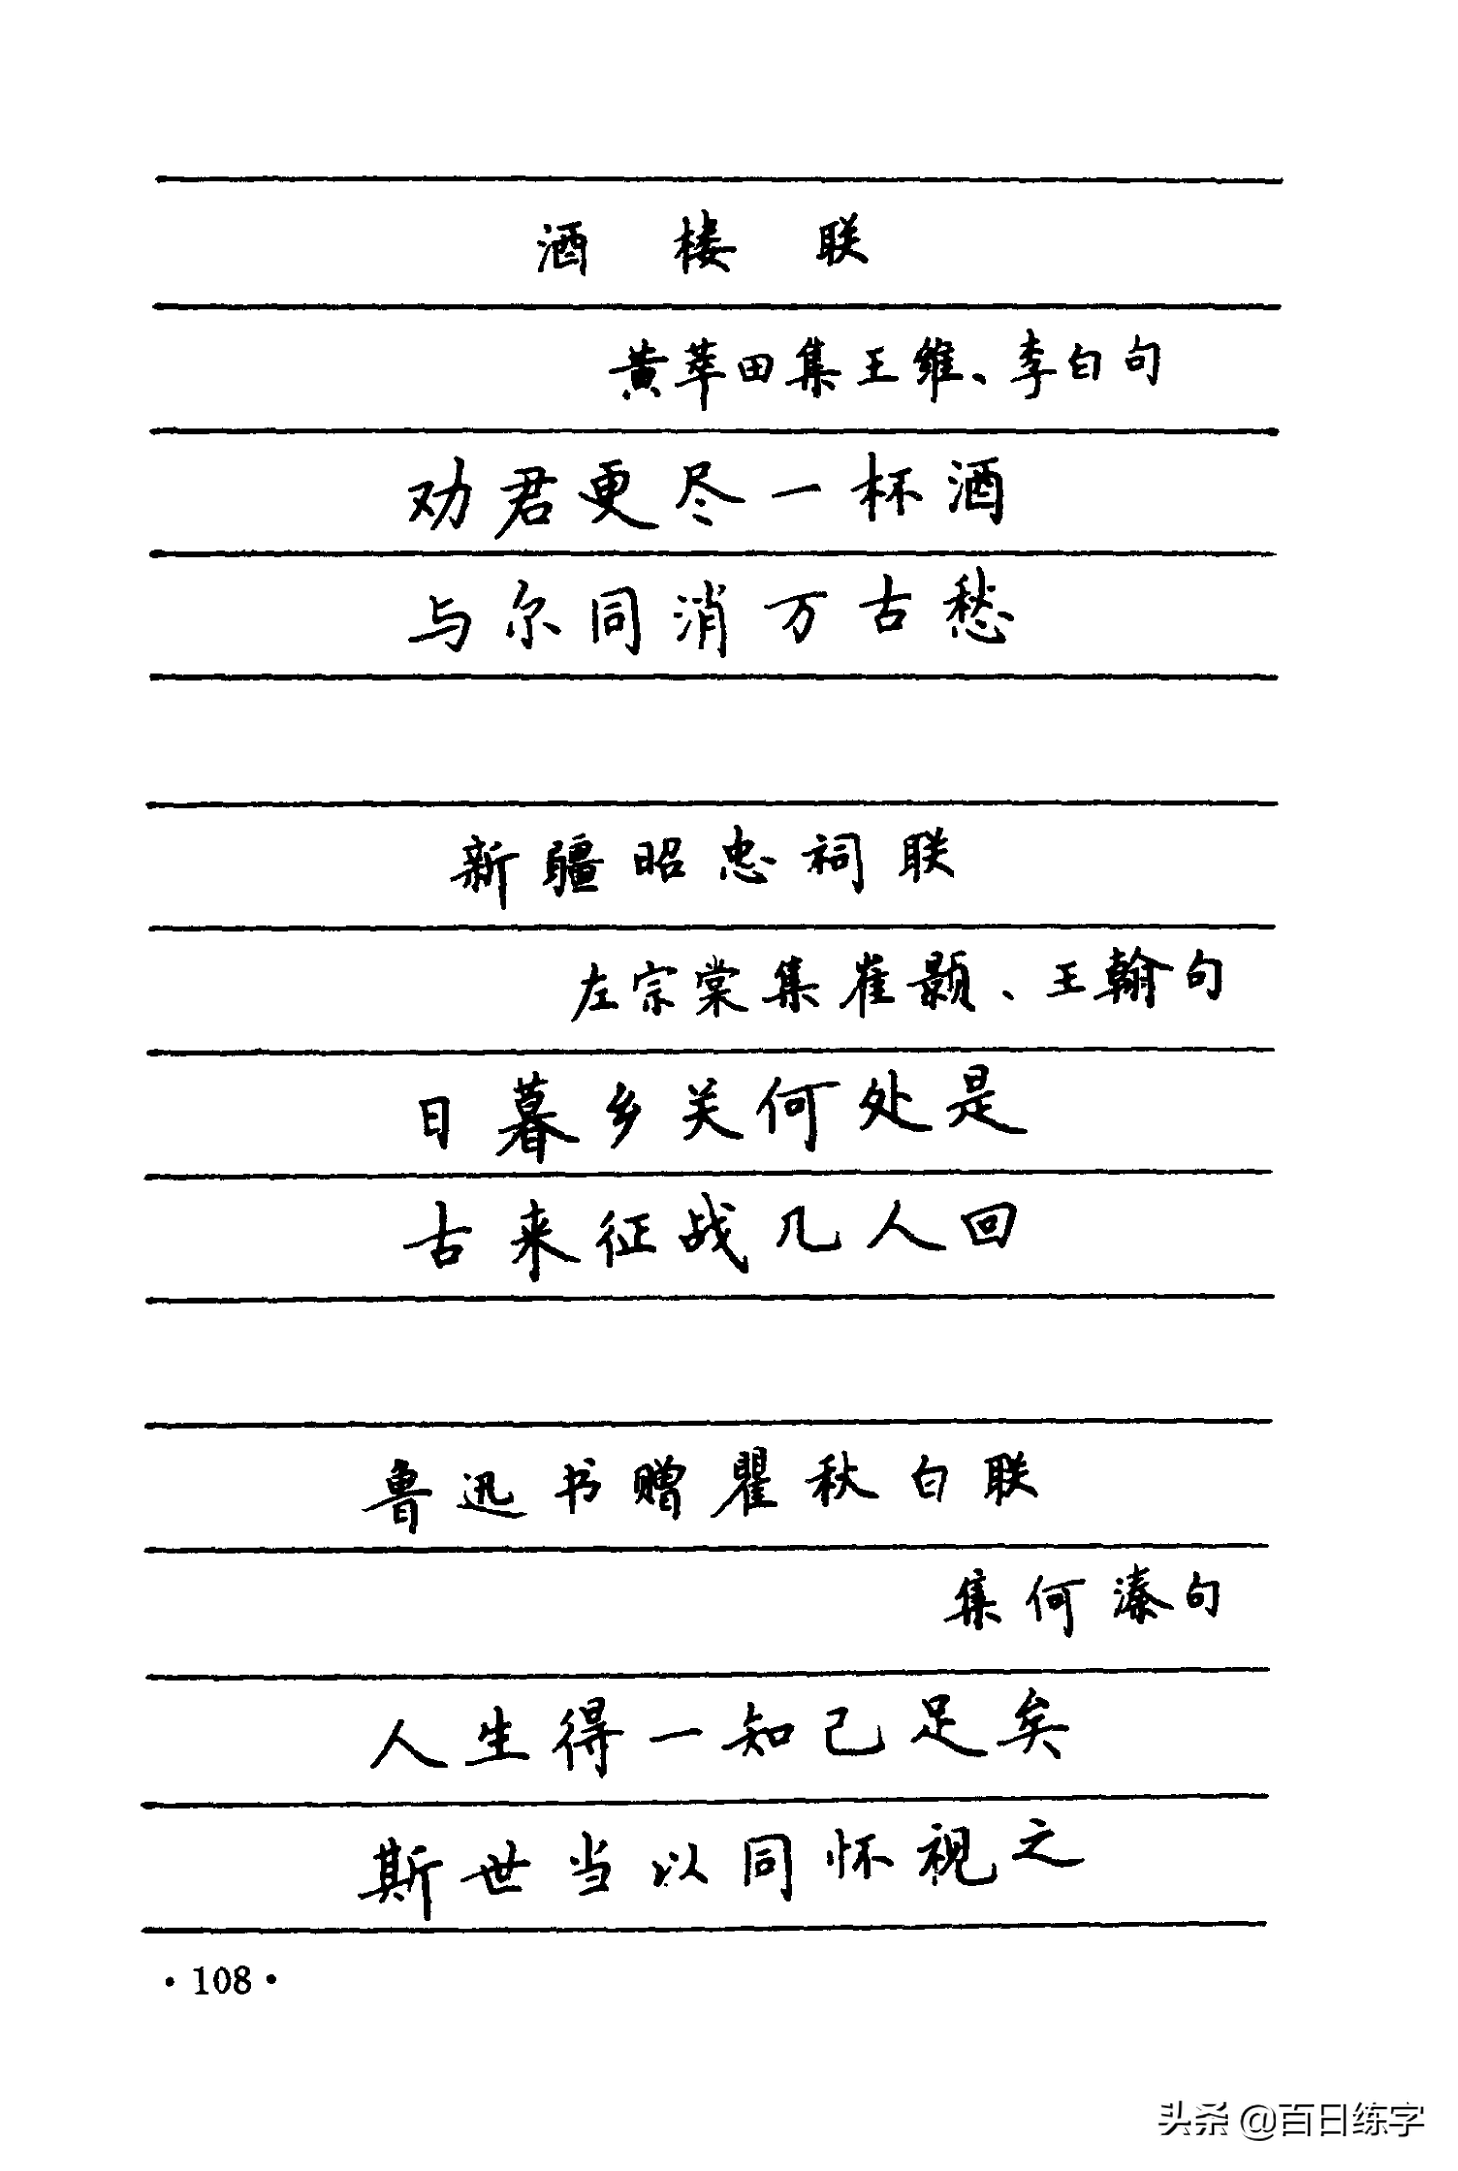 酒楼联
黄萃田集王维、李白句
劝君更尽一杯酒
与尔同消万古愁
新疆昭忠祠联
左宗棠集崔颢、王翰句
日暮乡关何处是
古来征战几人回
鲁迅书赠瞿秋白联
集何溱句
人生得一知己足矣
斯世当以同怀视之
·108·
头条 @百日练字